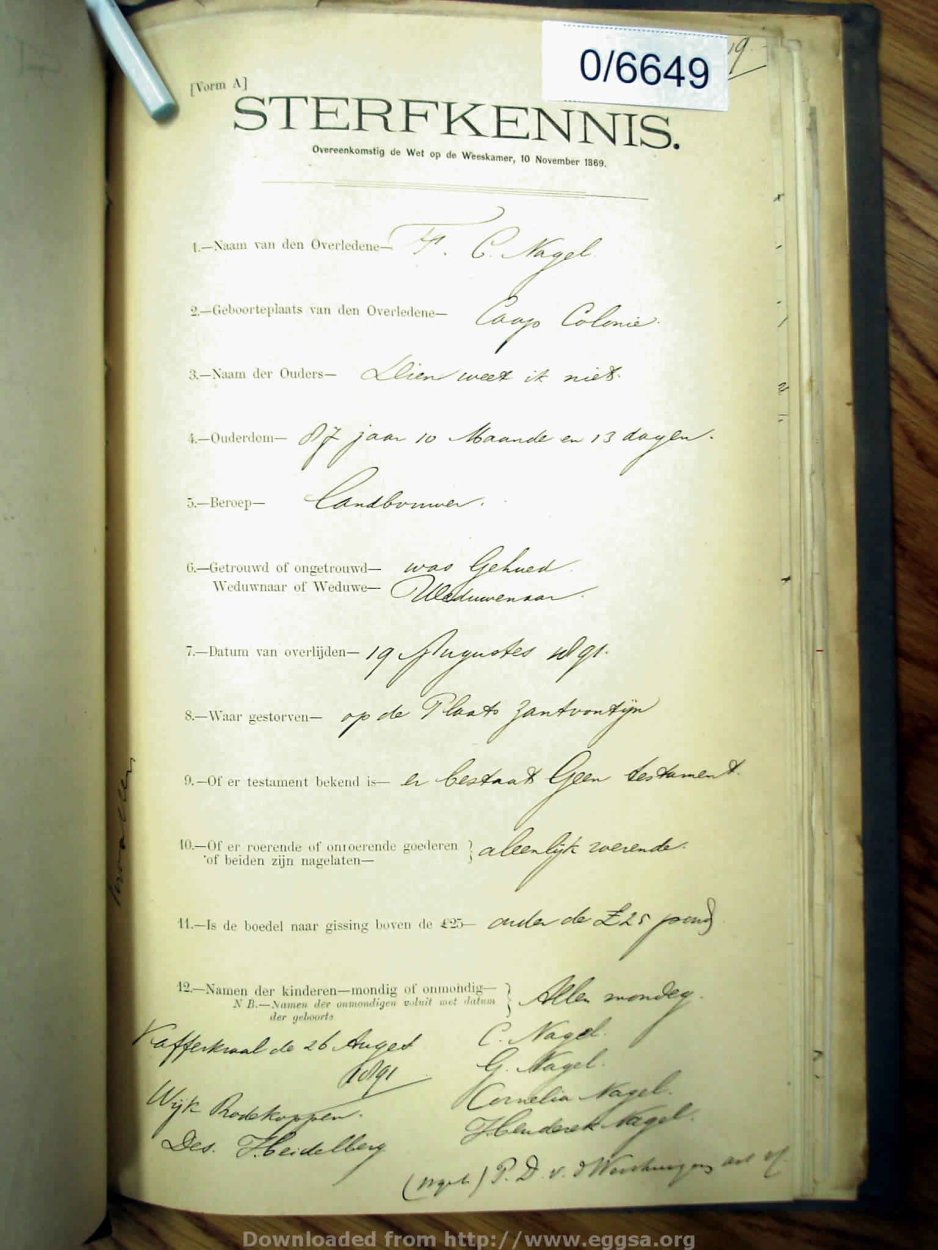 0/6649
19.
[Vorm A]
STERFKENNIS.
Overeenkomstig de Wet op de Weeskamer, 10 November 1869.
1.—Naam van den Overledene— F. C. Nagel.
2.—Geboorteplaats van den Overledene— Caap Colonie.
3.—Naam der Ouders— Dien weet ik niet.
4.—Ouderdom— 87 jaar 10 Maande en 13 dagen.
5.—Beroep— Landbouwer.
6.—Getrouwd of ongetrouwd— was Gehued.
Weduwnaar of Weduwe— Weduwenaar.
7.—Datum van overlijden— 19 Augustes 1891.
8.—Waar gestorven— op de Plaats Zantvontijn
9.—Of er testament bekend is— er bestaat Geen testament.
10.—Of er roerende of onroerende goederen } aleenlijk roerende.
of beiden zijn nagelaten—
11.—Is de boedel naar gissing boven de £25— onder de £25 pond
12.—Namen der kinderen—mondig of onmondig— } Allen mondeg.
N B.—Namen der onmondigen voluit met datum
der geboorte
Kafferkraal de 26 Auges C. Nagel.
1891 G. Nagel.
Wijk Roodekoppen. Cornelia Nagel.
Des. Heidelberg Henderek Nagel.
P. D. v.
Downloaded from http://www.eggsa.org